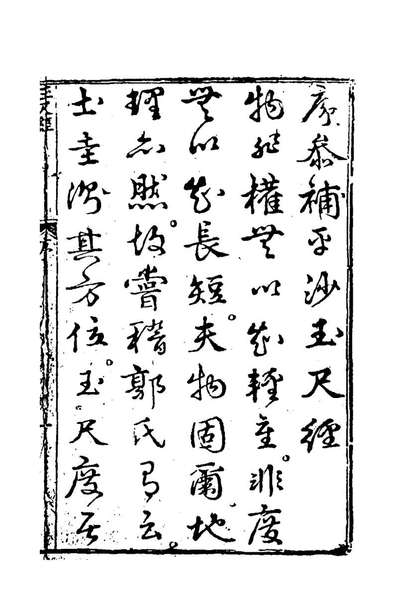 序叅補平沙玉尺經
物非權無以知輕重非度
無以知長短夫物固爾地
理亦然故嘗稽郭氏有云
土圭測其方位玉尺度其